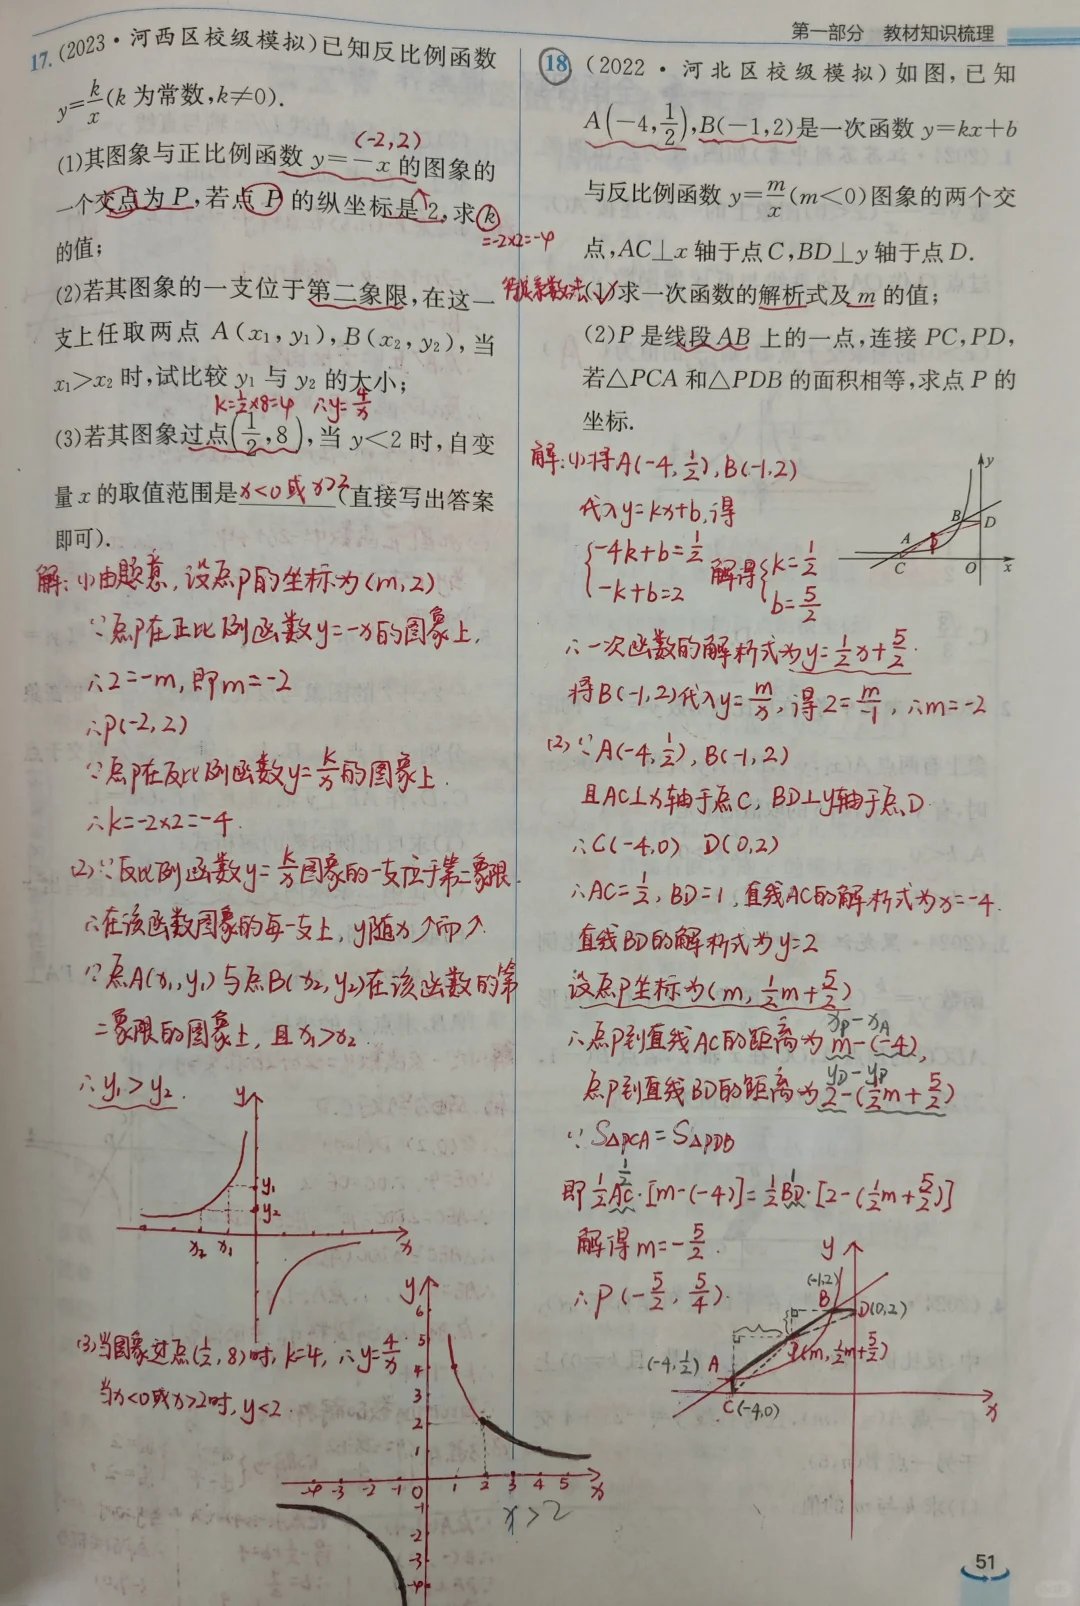 第一部分 教材知识梳理
17. (2023·河西区校级模拟)已知反比例函数
y=k/x(k为常数,k≠0).
(-2,2)
(1)其图象与正比例函数y=-x的图象的
一个交点为P,若点P的纵坐标是2,求k
=-2×2=-4
的值;
(2)若其图象的一支位于第二象限,在这一
支上任取两点A(x₁,y₁),B(x₂,y₂),当
x₁>x₂时,试比较y₁与y₂的大小;
k=1/2×8=4 ∴y=4/x
(3)若其图象过点(1/2,8),当y<2时,自变
量x的取值范围是x<0或x>2(直接写出答案
即可).
解:(1)由题意,设点P的坐标为(m,2)
∵点P在正比例函数y=-x的图象上,
∴2=-m,即m=-2
∴P(-2,2)
∵点P在反比例函数y=k/x的图象上.
∴k=-2×2=-4.
(2)∵反比例函数y=k/x图象的一支位于第二象限.
∴在该函数图象的每一支上,y随x↗而↗.
∵点A(x₁,y₁)与点B(x₂,y₂)在该函数的第
二象限的图象上,且x₁>x₂.
∴y₁>y₂.
y
y₁
y₂
x₂ x₁ x
(3)当图象过点(1/2,8)时,k=4,∴y=4/x
当x<0或x>2时,y<2.
y
6
5
4
3
2
1
-4 -3 -2 -1 0 1 2 3 4 5 x
-1
-2
-3
-4
x>2
18 (2022·河北区校级模拟)如图,已知
A(-4,1/2),B(-1,2)是一次函数y=kx+b
与反比例函数y=m/x(m<0)图象的两个交
点,AC⊥x轴于点C,BD⊥y轴于点D.
待定系数法
(1)求一次函数的解析式及m的值;
(2)P是线段AB上的一点,连接PC,PD,
若△PCA和△PDB的面积相等,求点P的
坐标.
y
B D
A P
C O x
解:(1)将A(-4,1/2),B(-1,2)
代入y=kx+b,得
{-4k+b=1/2
-k+b=2
解得{k=1/2
b=5/2
∴一次函数的解析式为y=1/2x+5/2.
将B(-1,2)代入y=m/x,得2=m/-1,∴m=-2
(2)∵A(-4,1/2),B(-1,2)
且AC⊥x轴于点C,BD⊥y轴于点D.
∴C(-4,0) D(0,2)
∴AC=1/2,BD=1,直线AC的解析式为x=-4.
直线BD的解析式为y=2
设点P坐标为(m,1/2m+5/2)
xP-xA
∴点P到直线AC的距离为m-(-4),
yD-yP
点P到直线BD的距离为2-(1/2m+5/2)
∵S△PCA=S△PDB
1/2 1
即1/2AC·[m-(-4)]=1/2BD·[2-(1/2m+5/2)]
解得m=-5/2.
∴P(-5/2,5/4).
y
(-1,2)
B D(0,2)
P(m,1/2m+5/2)
(-4,1/2) A
C(-4,0) x
51